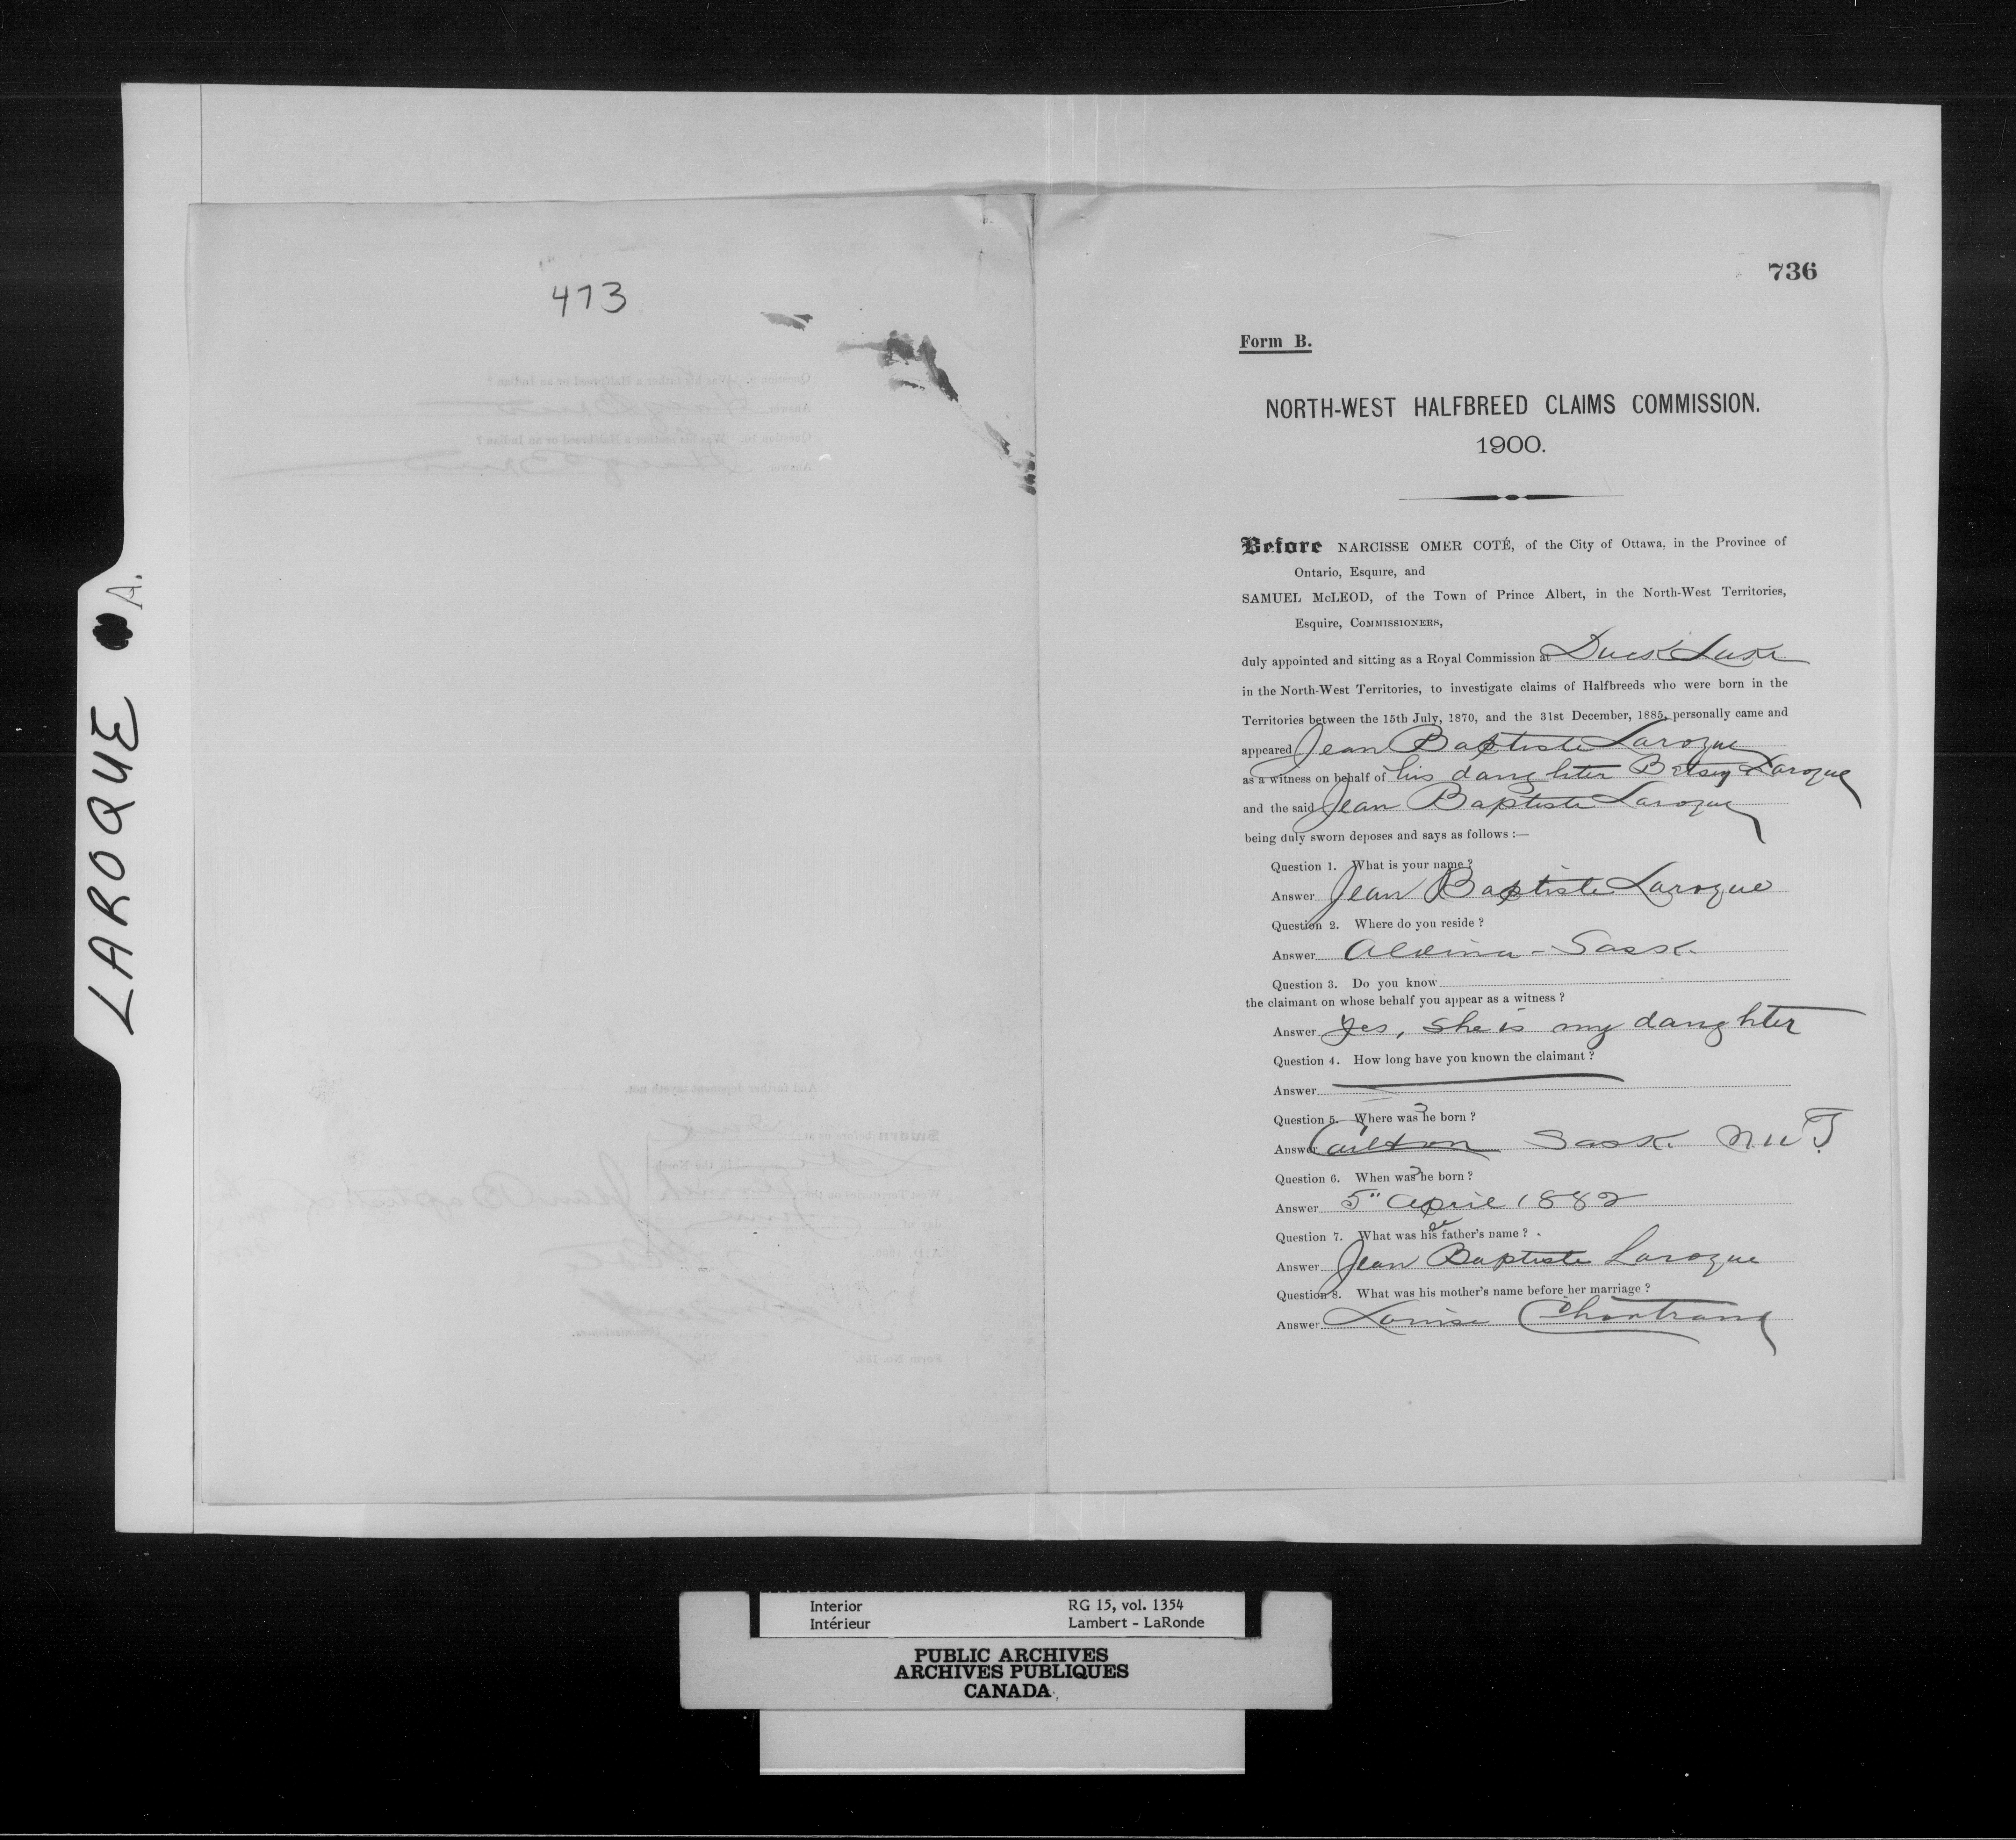 LAROQUE A.
473
736
Form B.
NORTH-WEST HALFBREED CLAIMS COMMISSION.
1900.
Before NARCISSE OMER COTÉ, of the City of Ottawa, in the Province of
Ontario, Esquire, and
SAMUEL McLEOD, of the Town of Prince Albert, in the North-West Territories,
Esquire, COMMISSIONERS,
duly appointed and sitting as a Royal Commission at Duck Lake
in the North-West Territories, to investigate claims of Halfbreeds who were born in the
Territories between the 15th July, 1870, and the 31st December, 1885, personally came and
appeared Jean Baptiste Laroque
as a witness on behalf of his daughter Betsy Laroque
and the said Jean Baptiste Laroque
being duly sworn deposes and says as follows :—
Question 1. What is your name ?
Answer Jean Baptiste Laroque
Question 2. Where do you reside ?
Answer Alvina - Sask.
Question 3. Do you know
the claimant on whose behalf you appear as a witness ?
Answer Yes, she is my daughter
Question 4. How long have you known the claimant ?
Answer
Question 5. Where was she born ?
Answer Carlton Sask. N W T.
Question 6. When was she born ?
Answer 5" April 1882
Question 7. What was her father's name ?
Answer Jean Baptiste Laroque
Question 8. What was his mother's name before her marriage ?
Answer Louise Chartrand
Interior RG 15, vol. 1354
Intérieur Lambert - LaRonde
PUBLIC ARCHIVES
ARCHIVES PUBLIQUES
CANADA